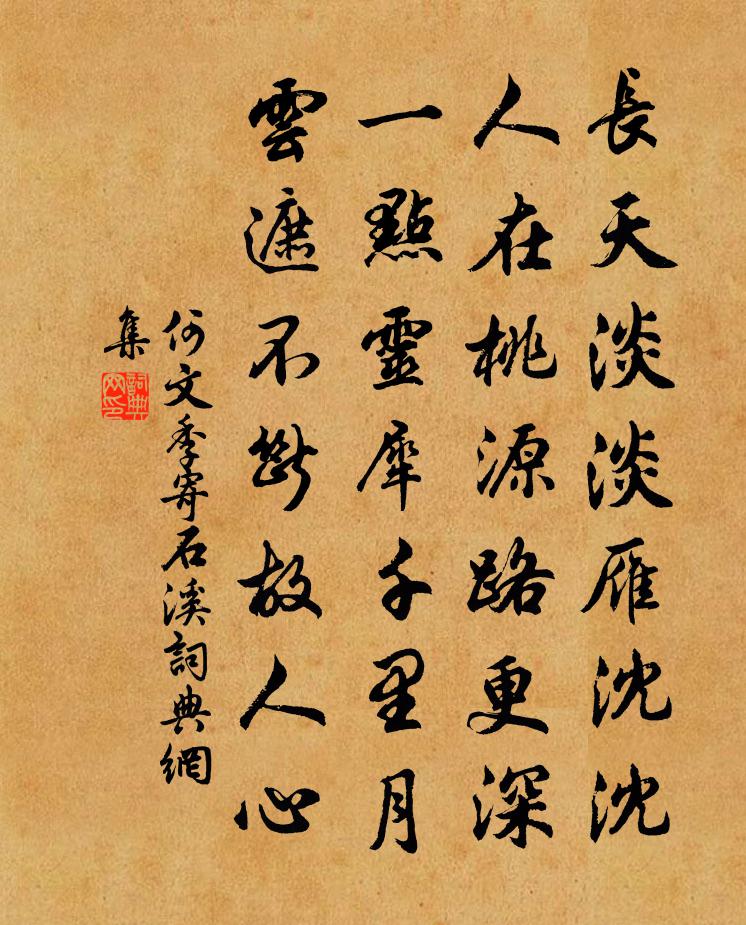 長天淡淡雁沈沈
人在桃源路更深
一點靈犀千里月
雲遮不斷故人心
何文季寄石溪詞典網
集
詞典網印